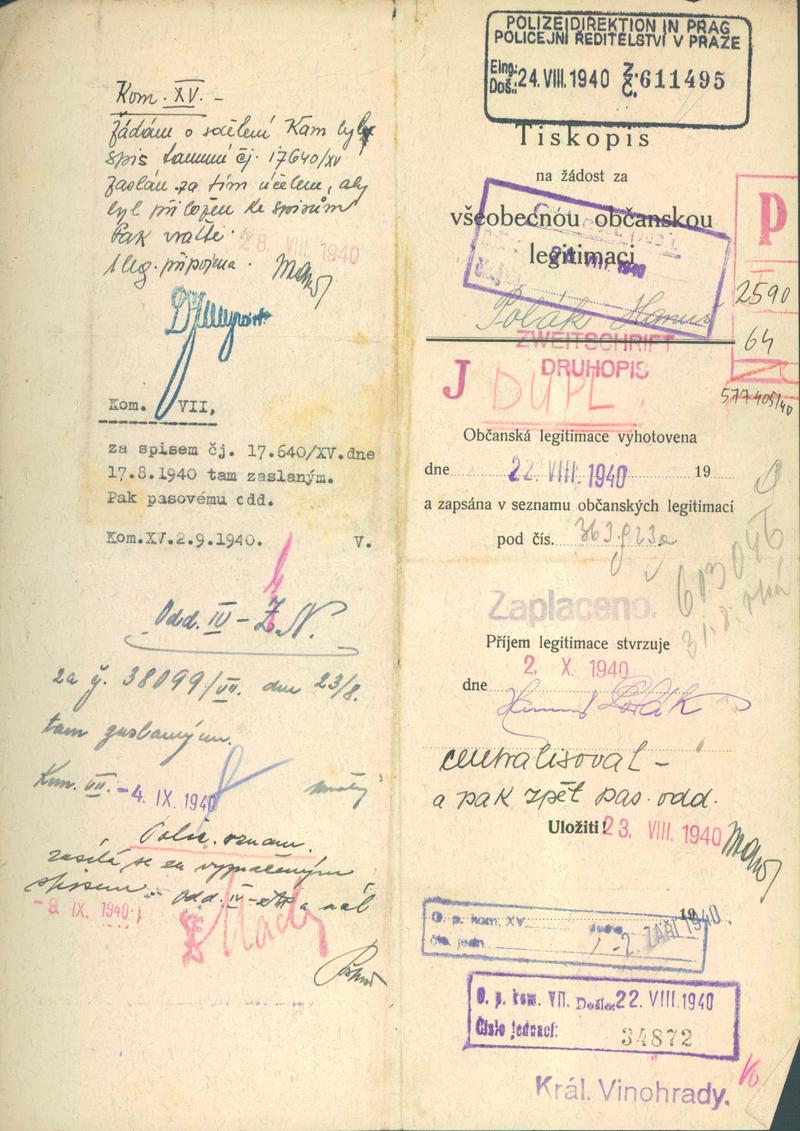 Kom. XV. -
žádám o sdělení kam byl
spis tamní čj. 17640/XV
zaslán za tím účelem, aby
byl přiložen ke spisům
Pak vraťte.
28. VIII. 1940
1 leg. připojena.
Kom. VII,
za spisem čj. 17.640/XV.dne
17.8.1940 tam zaslaným.
Pak pasovému odd.
Kom.XV.2.9.1940. V.
Odd. IV - N.
za č. 38099/VII. dne 23/8.
tam zaslaným.
Kom. VII. -4. IX. 1940
Polic. oznam.
zasílá se za vyznačeným
spisem odd. IV- a
-9. IX. 1940
POLIZEIDIREKTION IN PRAG
POLICEJNÍ ŘEDITELSTVÍ V PRAZE
Eing.:
Doš.: 24. VIII. 1940 Z. Č. 611495
Tiskopis
na žádost za
všeobecnou občanskou
legitimaci
VIII. 1940
P
2590
64
577405/40
Polák Hanuš
ZWEITSCHRIFT
DRUHOPIS
J DUPL.
Občanská legitimace vyhotovena
dne 22. VIII. 1940 19
a zapsána v seznamu občanských legitimací
pod čís.
613046
31.8.
Zaplaceno.
Příjem legitimace stvrzuje
2. X. 1940
dne Hanuš Polák
centralisoval -
a pak zpět pas. odd.
Uložiti! 23. VIII. 1940
19
O. p. kom. XV.
Čís. jedn.
-2. ZÁŘÍ 1940
O. p. kom. VII. Došlo: 22. VIII. 1940
Číslo jednací: 34872
Král. Vinohrady.